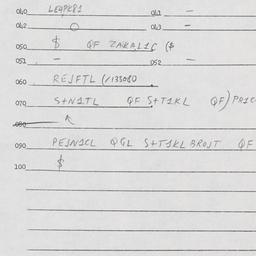 040 LEAPK81 041 -
042 O 043 -
050 $ QF ZAKALIS ($
051 - 052 -
060 REJFTL (/135010
070 S+NITL QF S+T1KL QF) PRIC
080
090 PEJNICL QGL S+T1KL BROJT QF
100 $